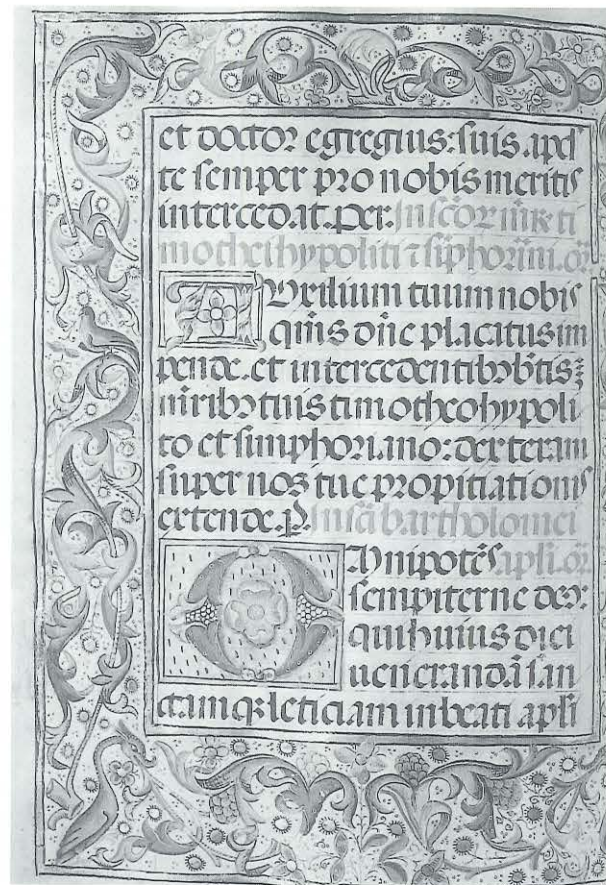 et doctor egregius: suis apd'
te semper pro nobis meritis
intercedat. per. In scōꝝ m̄r̄ ti
mothei hypoliti ⁊ siphoriīni. oꝛ̄
Auxilium tuum nobis
q̄m̄s dn̄e placatus im
pende. et intercedentibꝫ bt̄is
m̄ribꝫ tuis timotheo hypoli
to et simphoriano: dexteram
super nos tue propitiationis
extende. P̄. In sc̄i bartholomei
Omnipotēs apl̄i. oꝛ̄
sempiterne deꝰ:
qui huius diei
uenerandā san
ctamqꝫ leticiam in beati apl̄i